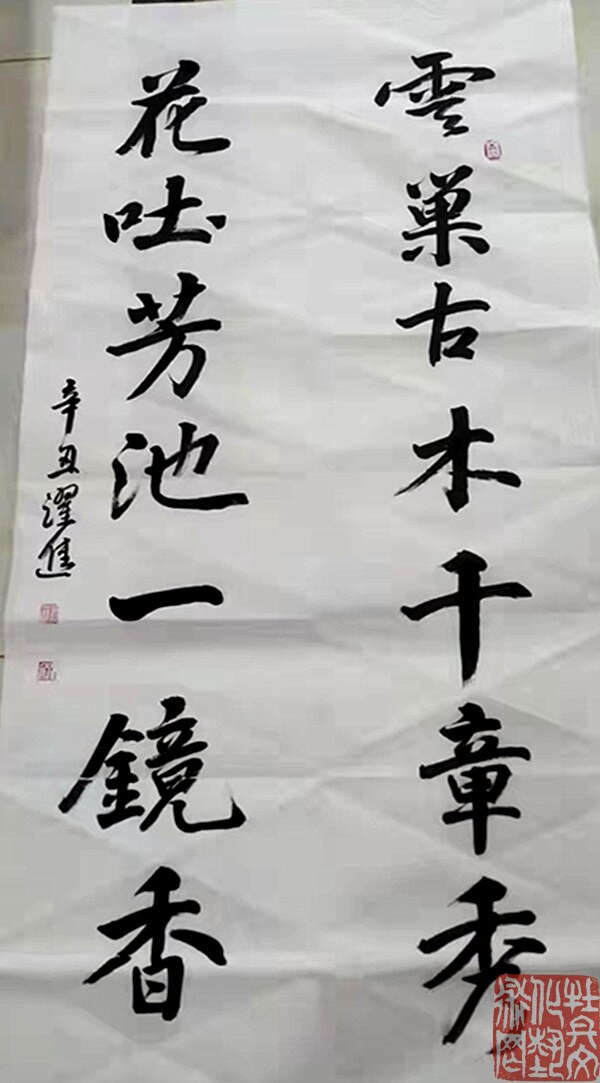 雲巢古木千章秀
花吐芳池一鏡香
辛丑濯進